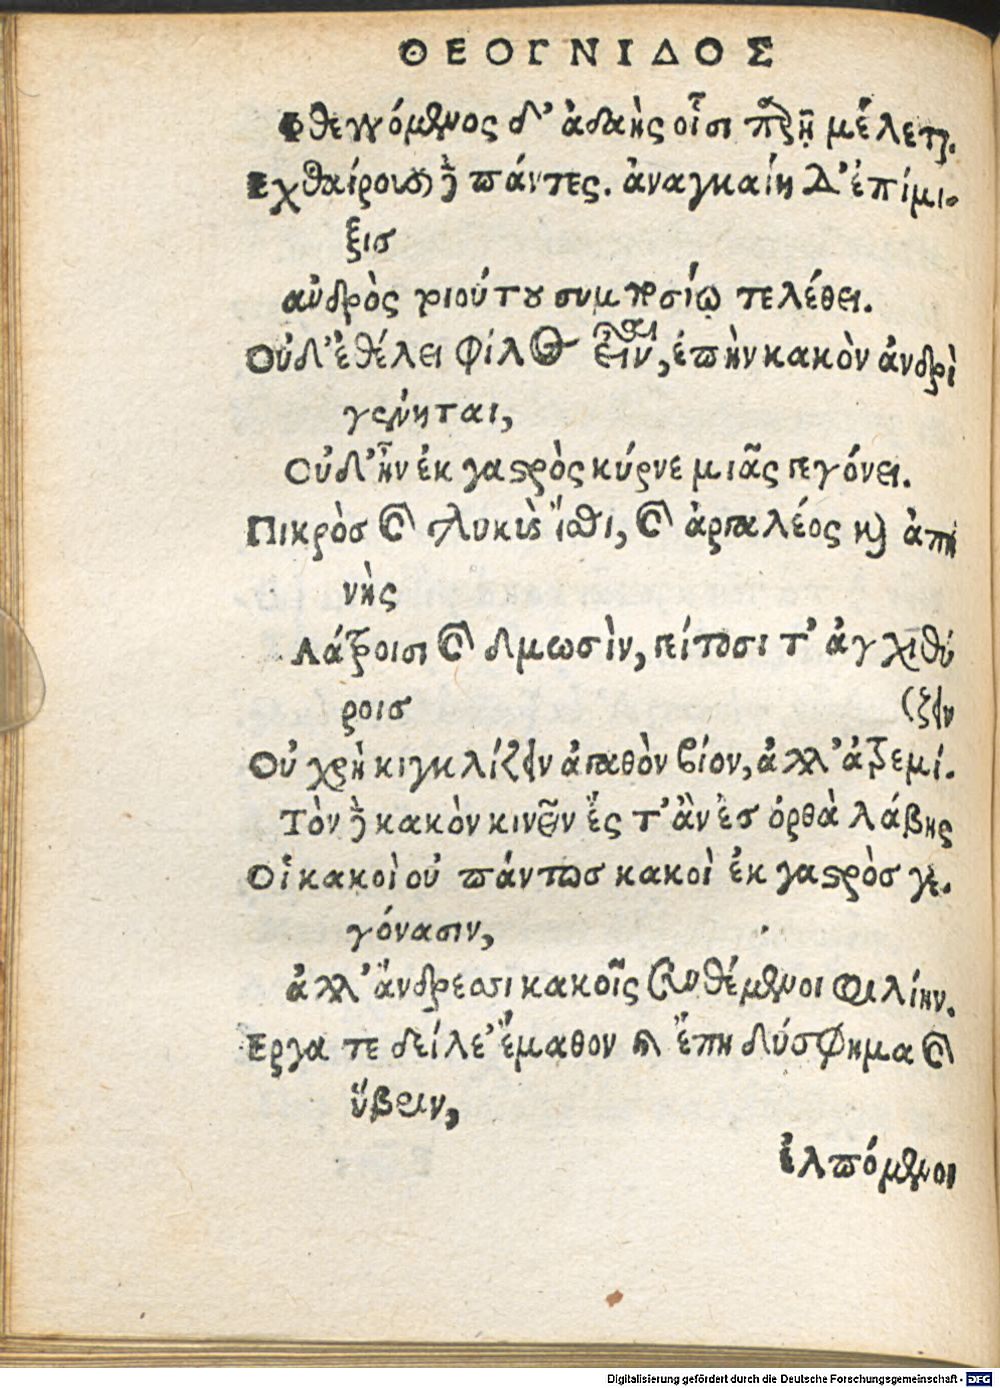 ΘΕΟΓΝΙΔΟΣ
Φθεγγόμενος δ' ἀδαὴς οἷσι παρῇ μέλεται.
Εχθαίρουσι δὲ πάντες. ἀναγκαίη δ' ἐπίμι-
ξισ
ἀνδρὸς τοιούτου συμποσίῳ τελέθει.
Οὐδ' ἐθέλει φίλος εἶναι, ἐπὴν κακὸν ἀνδρὶ
γένηται,
Οὐδ' ἢν ἐκ γαστρὸς κύρνε μιᾶς γεγόνει.
Πικρὸσ καὶ γλυκὺς ἴσθι, καὶ ἁρπαλέος καὶ ἀπη
νὴς
Λάτροισι καὶ δμωσὶν, γείτοσι τ' ἀγχιθύ
ροισ (ζειν
Οὐ χρὴ κιγκλίζειν ἀγαθὸν βίον, ἀλλ' ἀτρεμί.
Τὸν δὲ κακὸν κινεῖν ἔς τ' ἂν ἐσ ὀρθὰ λάβης
Οἱ κακοὶ οὐ πάντωσ κακοὶ ἐκ γαστρὸσ γε-
γόνασιν,
ἀλλ' ἄνδρεσσι κακοῖς συνθέμενοι φιλίην.
Εργα τε δείλ' ἔμαθον καὶ ἔπη δύσφημα καὶ
ὕβριν,
ἐλπόμενοι
Digitalisierung gefördert durch die Deutsche Forschungsgemeinschaft - DFG